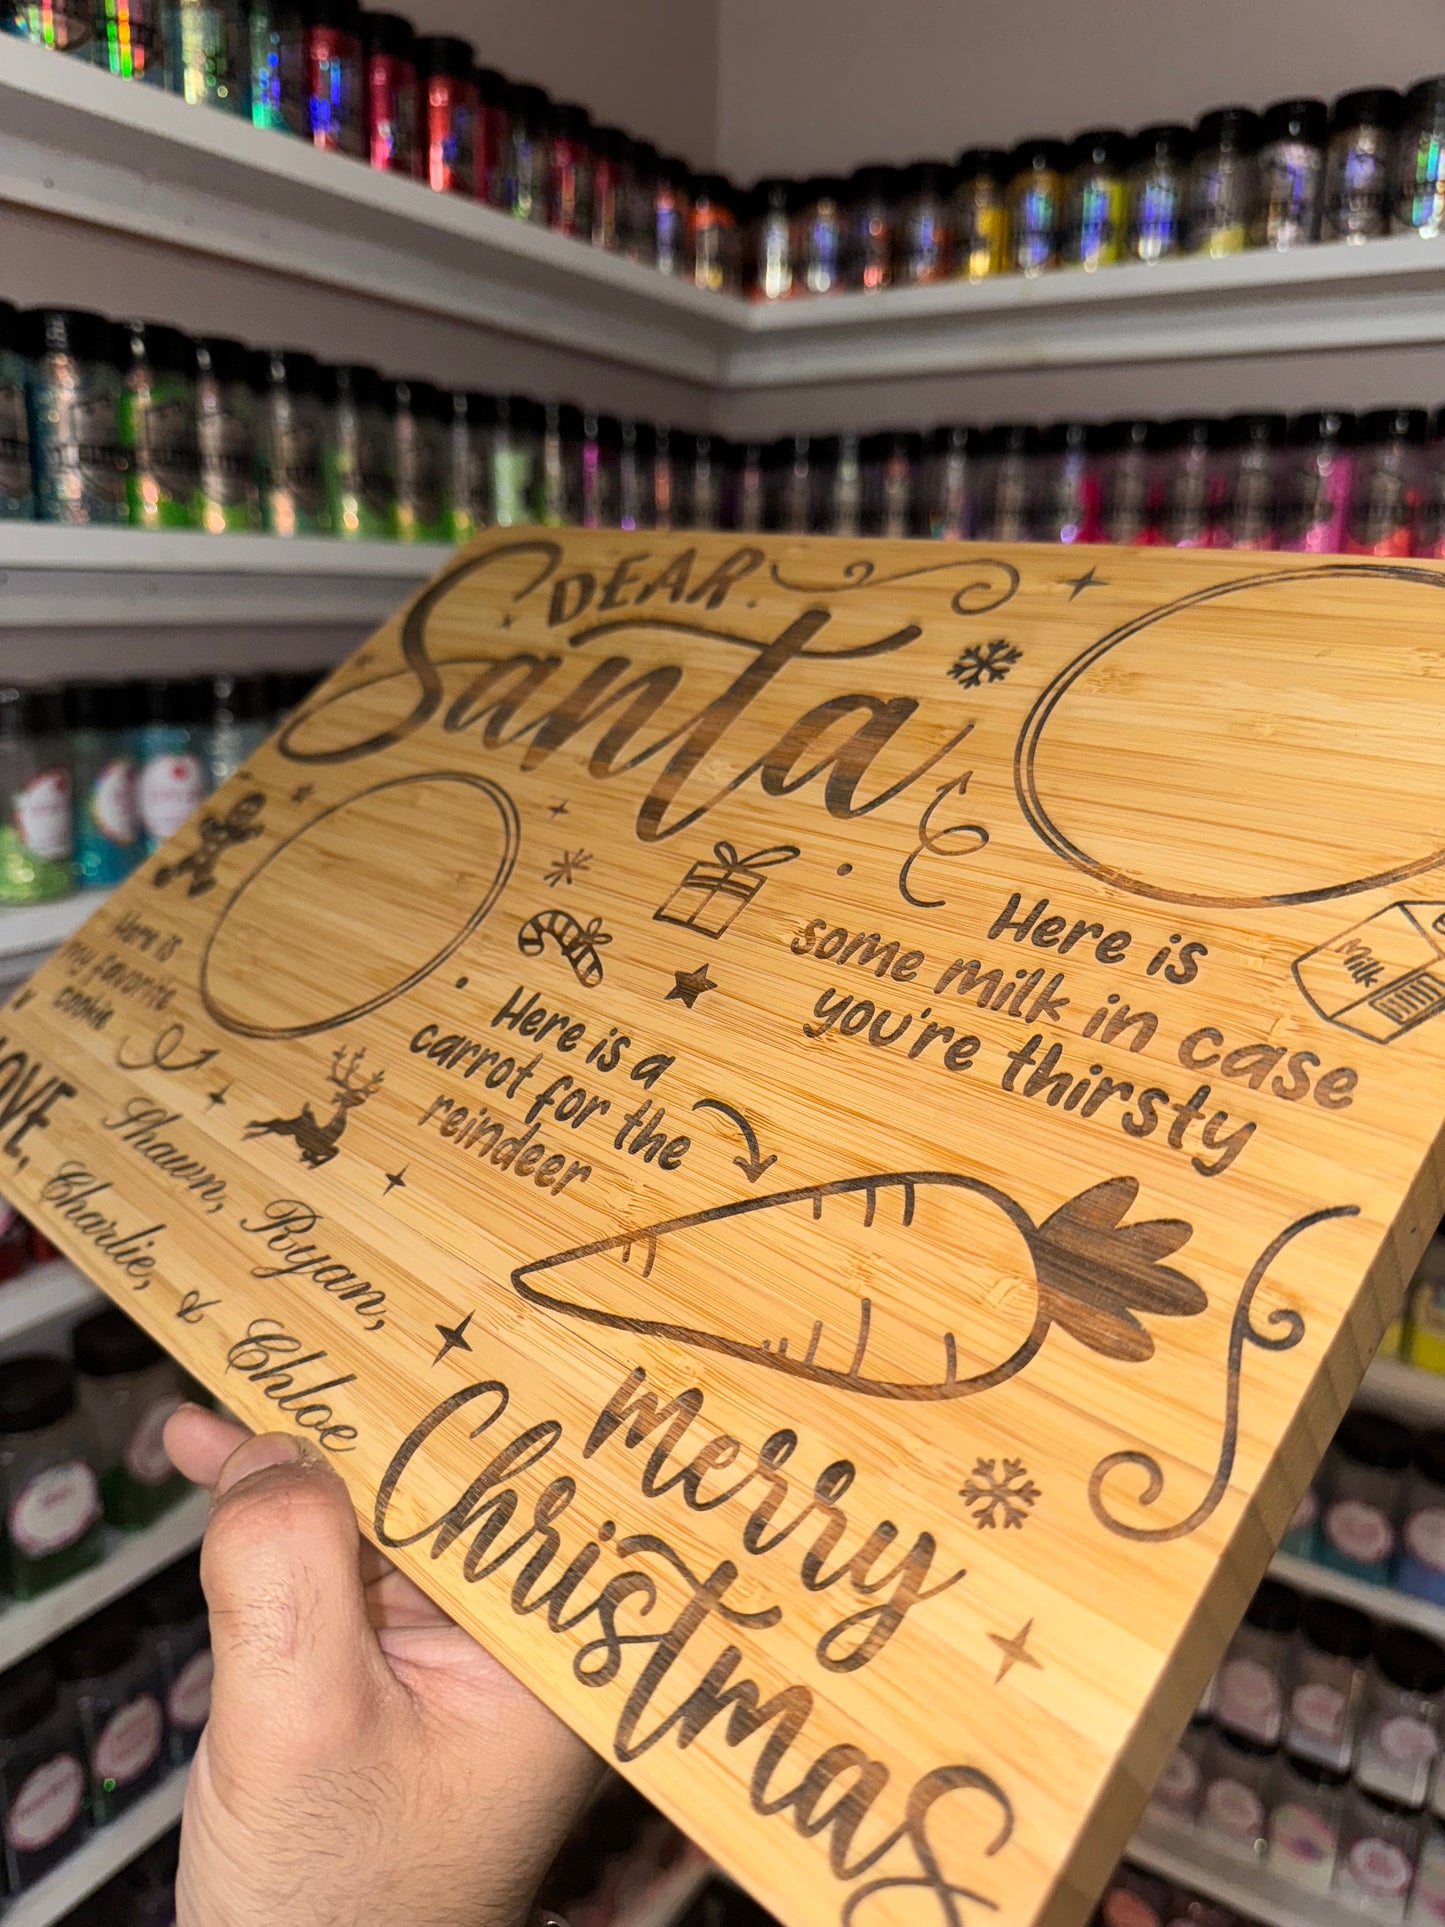 DEAR
Santa
Here is
some milk in case
you're thirsty
Milk
Here is
my favorite
cookie
Here is a
carrot for the
reindeer
LOVE,
Shawn, Ryan,
Charlie, & Chloe
Merry
Christmas